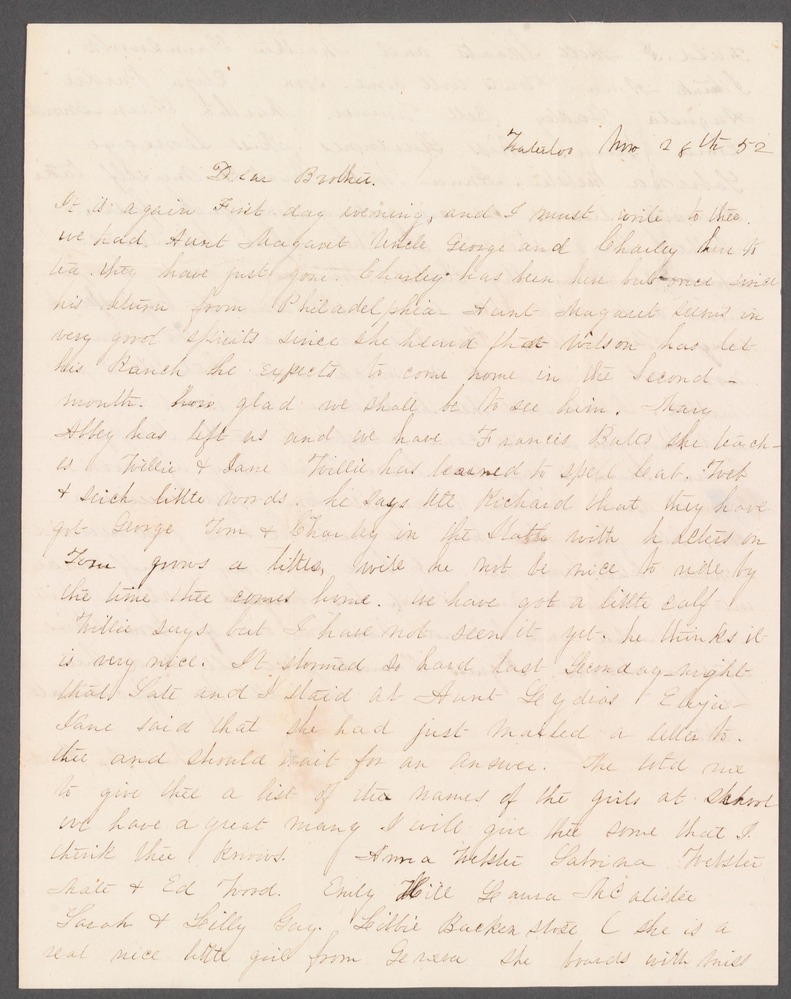 Waterloo Nov 28th 52
Dear Brother.
It is again First day evening, and I must write to thee.
we had Aunt Margaret Uncle George and Charley here to
tea. they have just gone. Charley has been here but once since
his return from Philadelphia - Aunt Margaret seems in
very good spirits since she heard that Wilson has let
his Ranch he expects to come home in the Second -
month. how glad we shall be to see him. Mary
Abbey has left us and we have Francis Bates she teach-
es Willie & Jane Willie has learned to spell Cat.
& sich little words. he says tell Richard that they have
got George Tom & Charley in the Stable with halters on
Tom grows a little, will he not be nice to ride by
the time thee comes home. we have got a little calf
Willie says but I have not seen it yet. he thinks it
is very nice. It stormed so hard last Seconday night
that and I staid at Aunt Lydias Eliza-
Jane said that she had just mailed a letter to.
thee and should wait for an answer. She told me
to give thee a list of the names of the girls at school
we have a great many I will give thee some that I
think thee knows. Anna Webster Sabrina Webster
Kate & Ed Wood. Emily Hill Laura McAlister
Sarah & Lilly Gay. Libbie Backenstose ( she is a
real nice little girl from Geneva she boards with miss